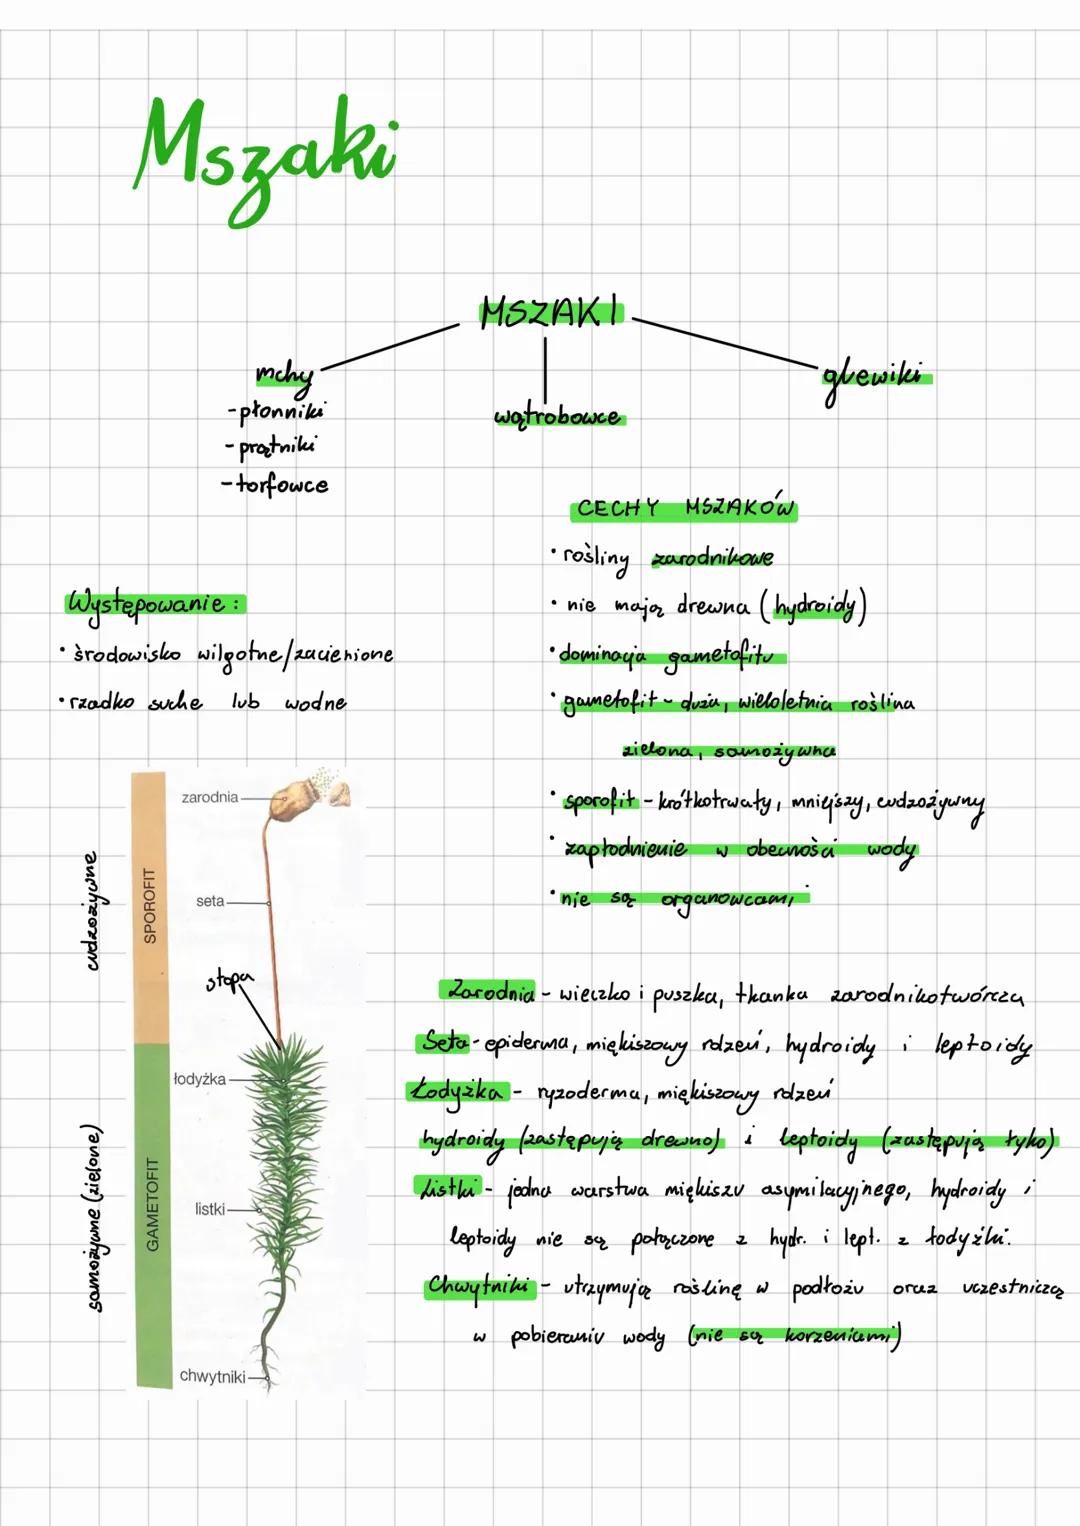 Mszaki
MSZAKI
mchy
- płonniki
- prątniki
- torfowce
wątrobowce
glewiki
CECHY MSZAKÓW
• rośliny zarodnikowe
• nie mają drewna (hydroidy)
• dominacja gametofitu
• gametofit - duża, wieloletnia roślina
zielona, samożywna
• sporofit - krótkotrwały, mniejszy, cudzożywny
• zapłodnienie w obecności wody
• nie są organowcami
Występowanie:
• środowisko wilgotne/zacienione
• rzadko suche lub wodne
cudzożywne
samożywne (zielone)
SPOROFIT
GAMETOFIT
zarodnia
seta
stopa
łodyżka
listki
chwytniki
Zarodnia - wieczko i puszka, tkanka zarodnikotwórcza
Seta - epiderma, miękiszowy rdzeń, hydroidy i leptoidy
Łodyżka - ryzoderma, miękiszowy rdzeń
hydroidy (zastępują drewno) i leptoidy (zastępują łyko)
Listki - jedna warstwa miękiszu asymilacyjnego, hydroidy i
leptoidy nie są połączone z hydr. i lept. z łodyżki.
Chwytniki - utrzymują roślinę w podłożu oraz uczestniczą
w pobieraniu wody (nie są korzeniami)